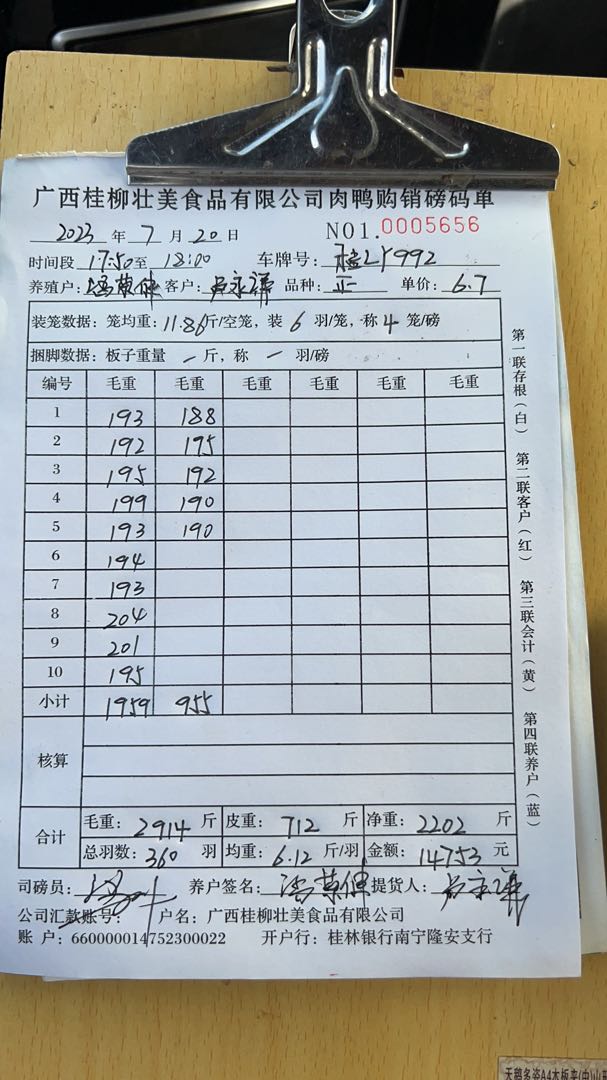 广西桂柳壮美食品有限公司肉鸭购销磅码单
2023 年 7 月 20 日 NO1.0005656
时间段 17:50 至 18:00 车牌号：
养殖户： 客户：吕永谦 品种：正 单价：6.7
装笼数据：笼均重：11.86斤/空笼，装 6 羽/笼，称 4 笼/磅
捆脚数据：板子重量 一 斤，称 一 羽/磅
编号 毛重 毛重 毛重 毛重 毛重 毛重
1 193 188
2 192 195
3 195 192
4 199 190
5 193 190
6 194
7 193
8 204
9 201
10 195
小计 1959 955
核算
合计 毛重：2914 斤 皮重：712 斤 净重：2202 斤
总羽数：360 羽 均重：6.12 斤/羽 金额：14753 元
司磅员： 养户签名： 提货人：吕永谦
公司汇款账号： 户名：广西桂柳壮美食品有限公司
账 户：660000014752300022 开户行：桂林银行南宁隆安支行
第一联存根（白） 第二联客户（红） 第三联会计（黄） 第四联养户（蓝）
天鹅多姿A4木板夹(中)